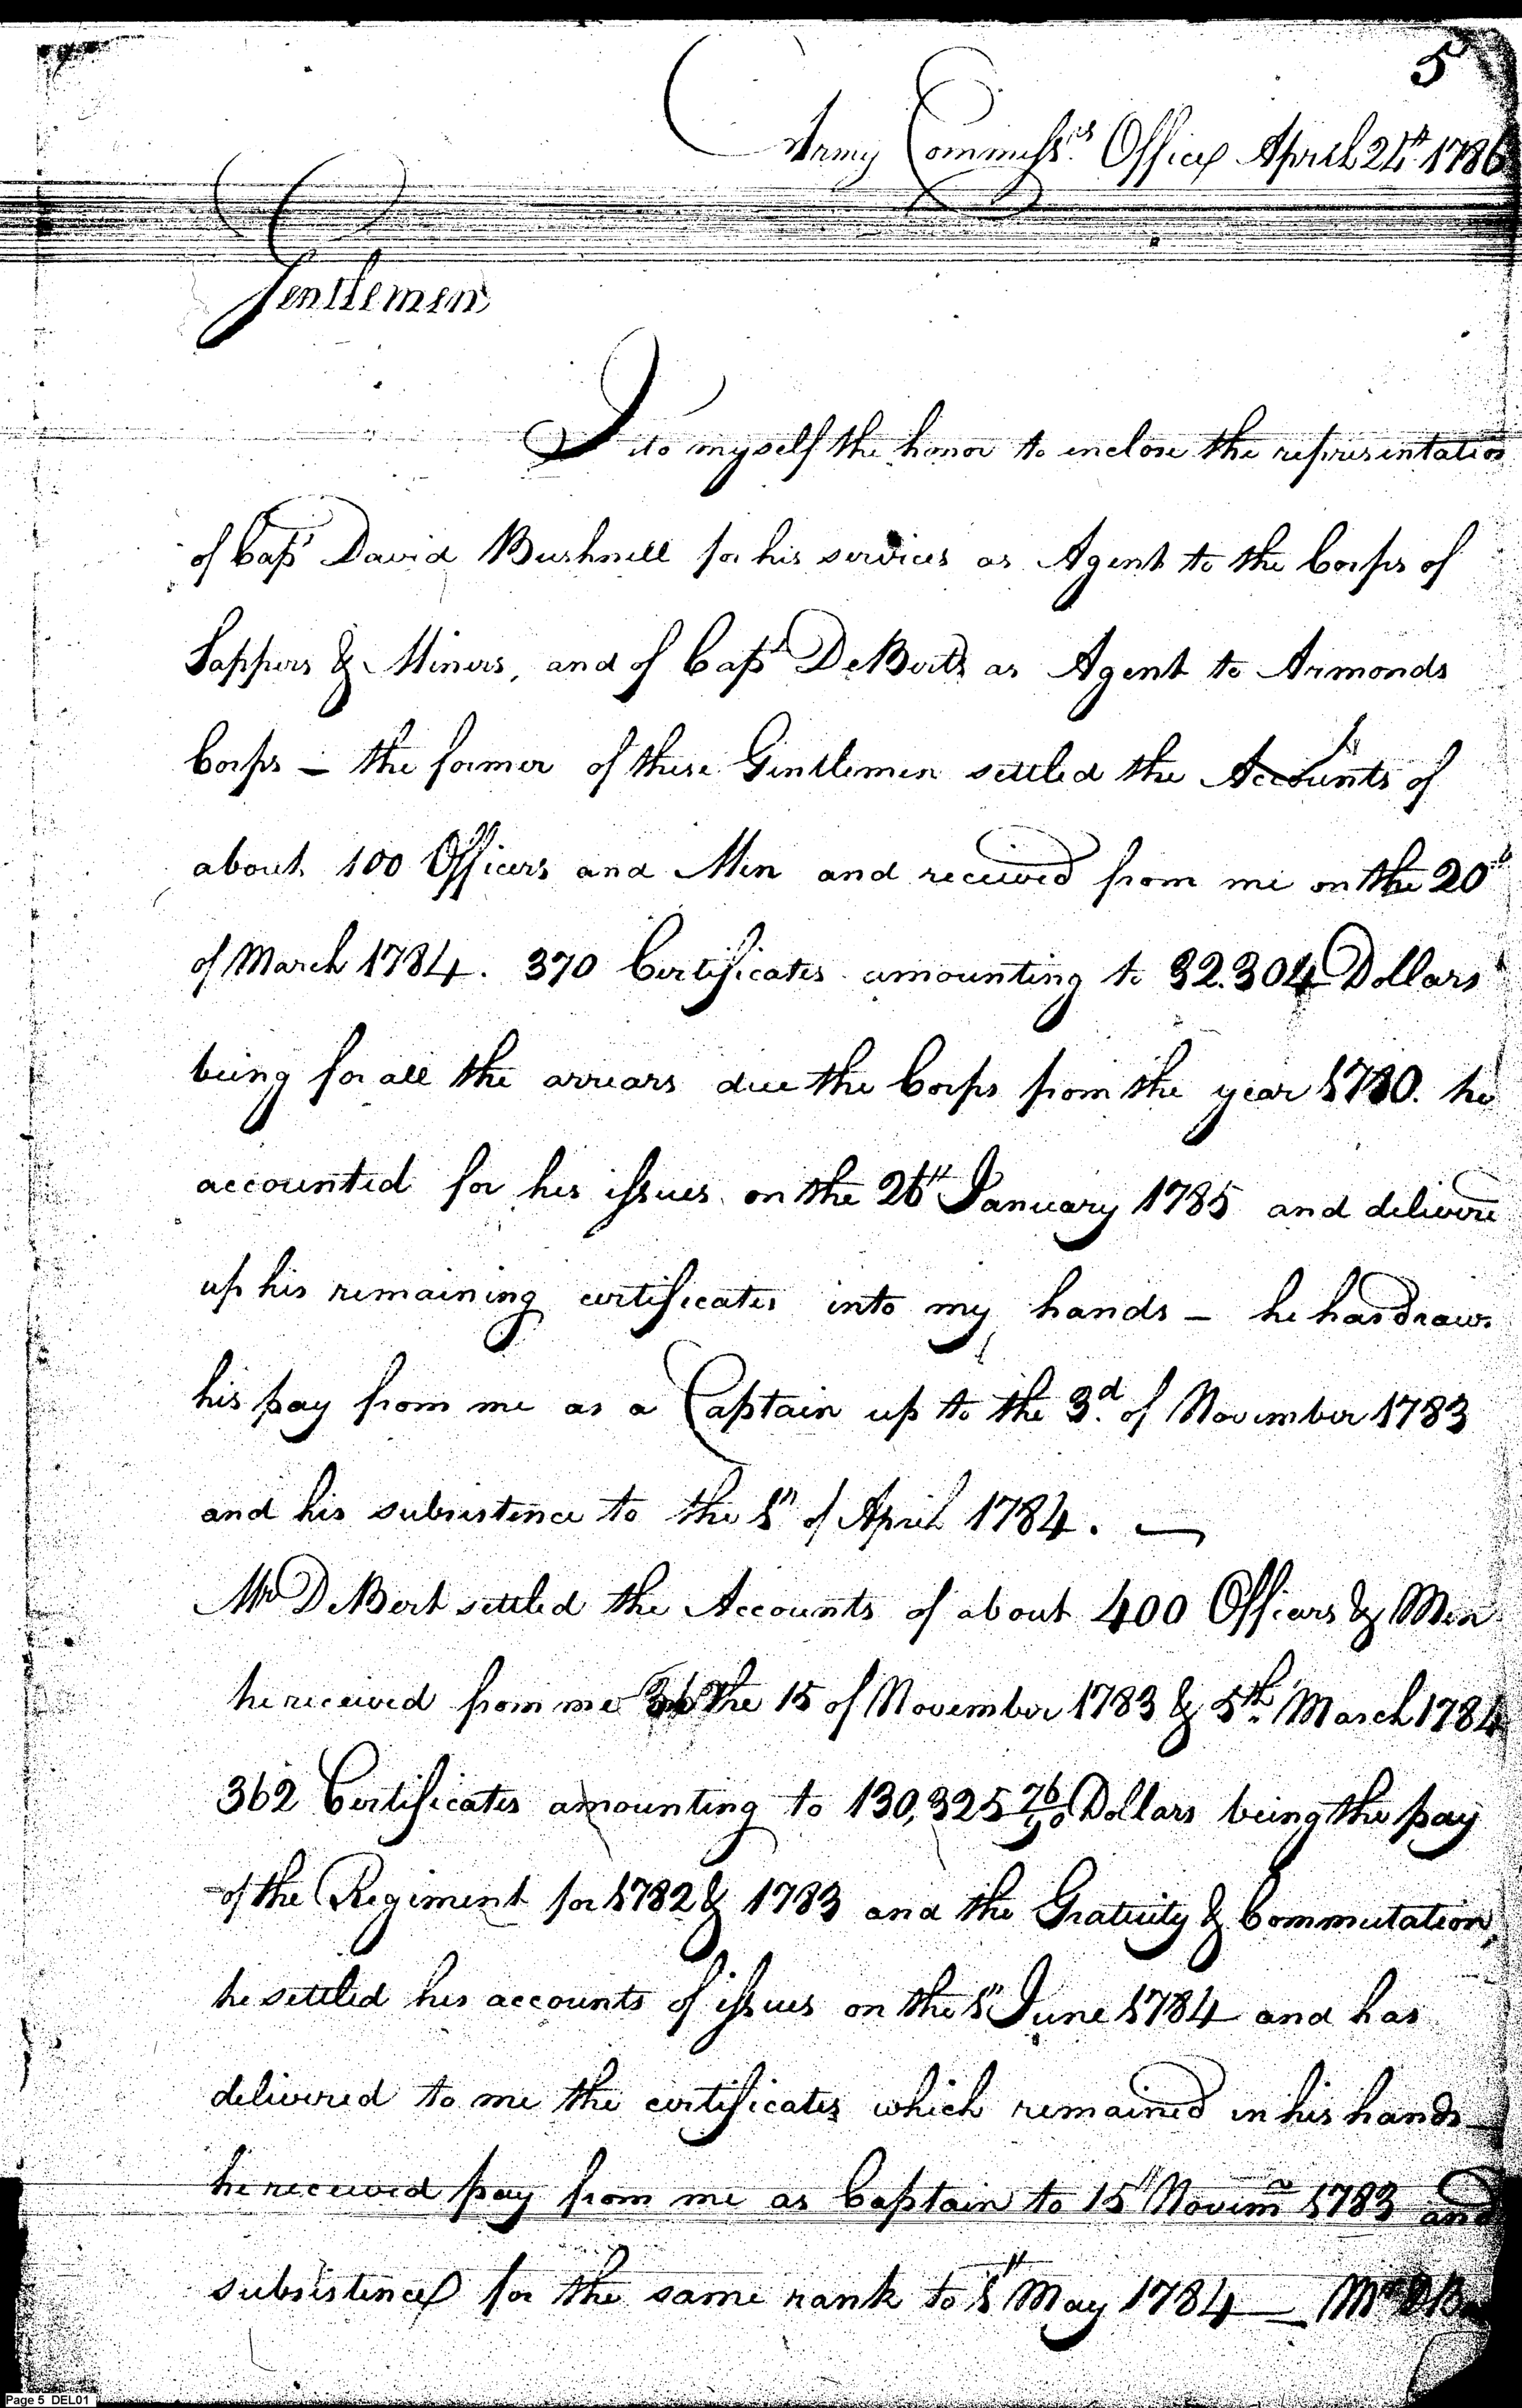 5
Army Commissrs. Office April 24th 1786
Gentlemen
I do myself the honor to enclose the representation
of Capt David Bushnell for his services as Agent to the Corps of
Sappers & Miners, and of Capt DeBerts as Agent to Armonds
Corps – the former of these Gentlemen settled the Accounts of
about 100 Officers and Men and received from me on the 20th
of March 1784. 370 Certificates amounting to 32.304 Dollars
being for all the arrears due the Corps from the year 1780. he
accounted for his issues on the 26th January 1785 and delivere
up his remaining certificates into my hands – he has drawn
his pay from me as a Captain up to the 3d. of November 1783
and his subsistence to the 1st of April 1784. —
Mr DeBert settled the Accounts of about 400 Officers & Men
he received from me the 15 of November 1783 & 5th. March 1784
362 Certificates amounting to 130,325 76/90 Dollars being the pay
of the Regiment for 1782 & 1783 and the Gratuity & Commutation,
he settled his accounts of issues on the 1st June 1784 and has
delivered to me the certificates which remained in his hands –
he received pay from me as Captain to 15th Novemr 1783 and
subsistence for the same rank to 1st May 1784 — Mr DB
Page 5 DEL01